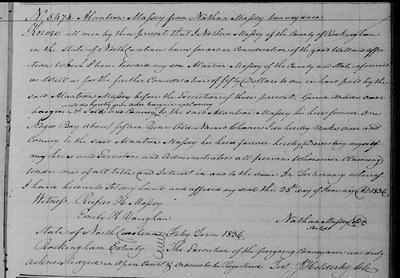 No 5474 Alanson Massey from Nathan Massey conveyance
Know all men by these present that I Nathan Massey of the County of Rockingham
in the State of North Carolina have for and in Consideration of the good Will and affec
tion which I have towards my son Alanson Massey of the County and State aforesaid
as Well as for the further Consideration of fifty Dollars to me in hand paid by the
said Alanson Massey before the Execution of these present, Given over
and do hereby give
and Convey to the said Alanson Massey his heirs forever One
Negro Boy about fifteen years Old Named I do hereby Make over and
Convey to the said Alanson Massey his heirs forever hereby Debarring myself
my heirs and Executors and Administrators all persons Whomsoever Claiming
under me of all title and Interest in and to the same. In Testimony whereof
I have hereunto set my hand and affixed my seal the 25th day of January AD 1836
Witness. Rufus H. Massey
Emily H Vaughan
Nathan Massey
State of North Carolina Feby Term 1836
Rockingham County The Execution of the foregoing Conveyance was duly
acknowledged in Open Court & Ordered to be Registered Test